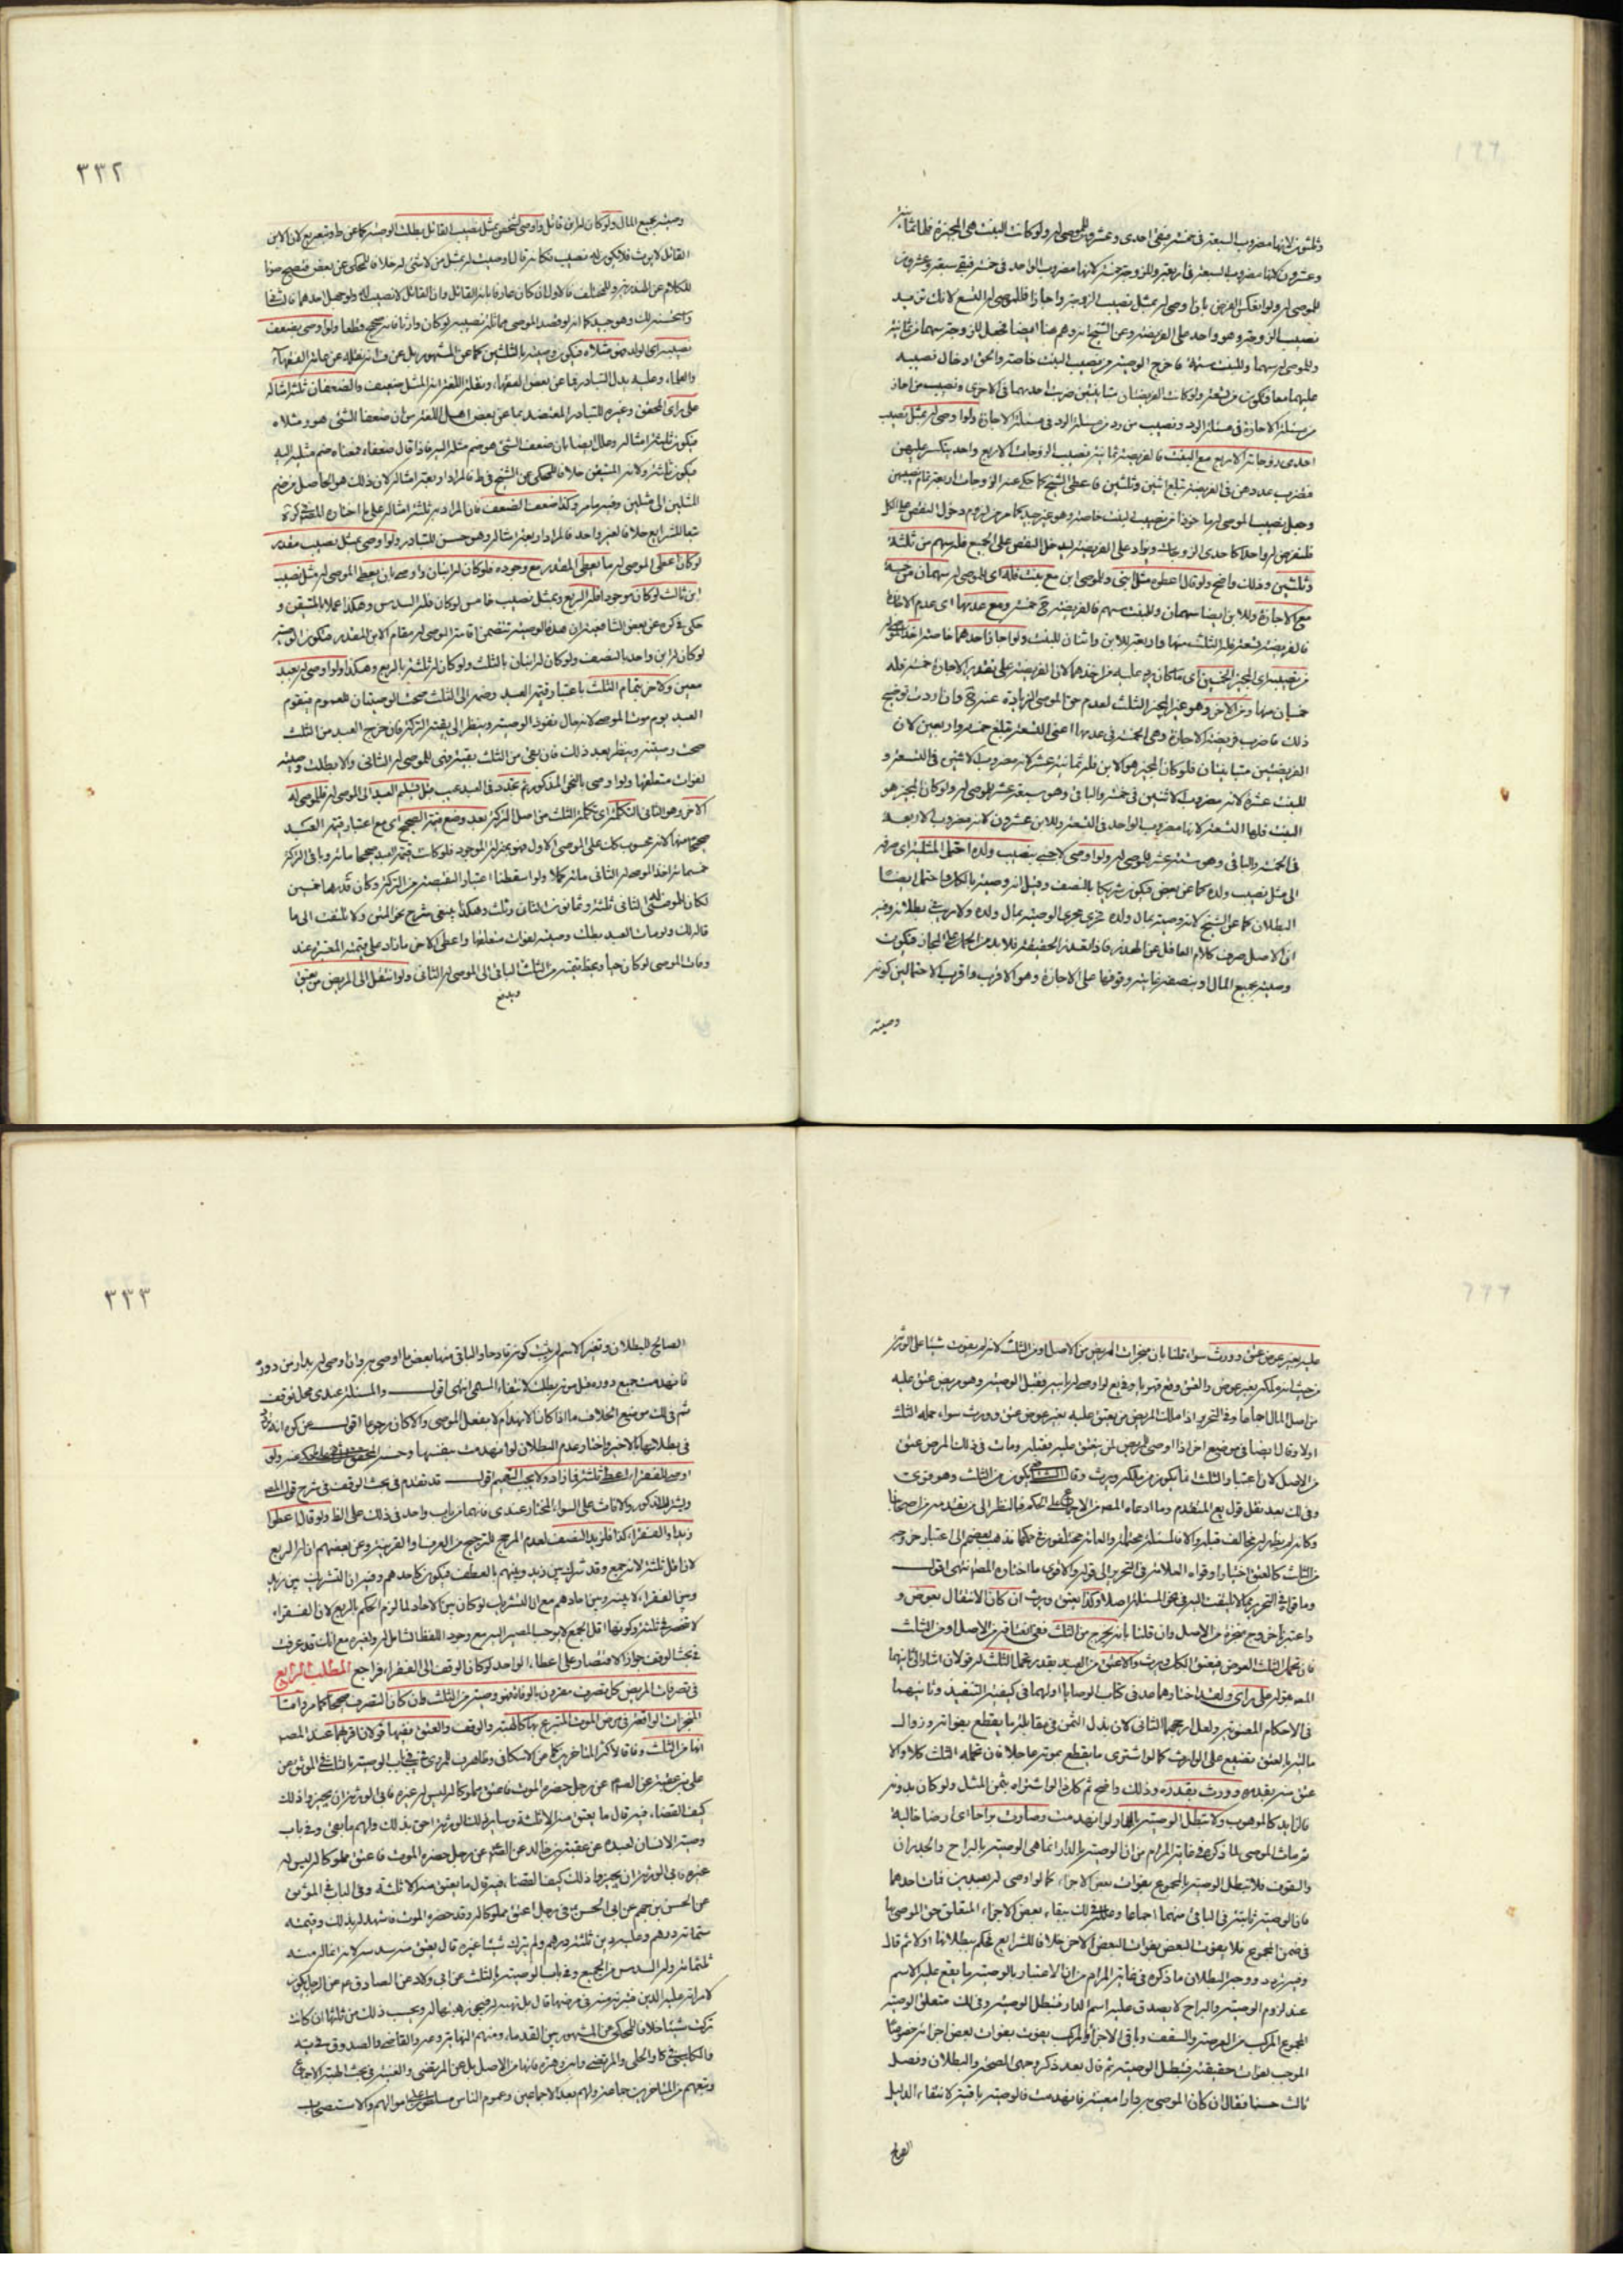 وثلثون لانها مضروب السبعة في خمسة يبقى احدى وعشرون للموصى له ولو كانت البنت هي المجيزة فلها ثمانية
وعشرون لانها مضروب السبعة في اربعة وللزوجة خمسة لانها مضروب الواحد في خمسة فيبقى سبعة وعشرون
للموصى له ولو انعكس الفرض بان اوصى له بمثل نصيب الزوجة واجازتا فللموصى له التسع لانك تزيد
نصيب الزوجة وهو واحد على الفريضة وعن الشيخ انه وهم هنا ايضا فجعل للزوجة سهما من ثمانية
وللموصى له سهما وللبنت ستة فاخرج الوصية من نصيب البنت خاصة والحق ادخال نصيبه
عليهما معا فتكون من تسعة ولو كانت الفريضتان متباينتين ضرب احديهما في الاخرى ونصيب من اجاز
من مسئلة الاجازة في مسئلة الرد ونصيب من رد من مسئلة الرد في مسئلة الاجازة ولو اوصى له بمثل نصيب
احدى زوجاته الاربع مع البنت فالفريضة ثمانية نصيب الزوجات الاربع واحد ينكسر عليهن
فنضرب عددهن في الفريضة تبلغ اثنين وثلثين فاعطى الشيخ كما حكى عنه الزوجات اربعة تمام نصيبهن
وجعل نصيب الموصى له ماخوذا من نصيب البنت خاصة وهو غير جيد كما مر من لزوم دخول النقص على الكل
فلنفرض له واحدا كاحدى الزوجات ويزاد على الفريضة ليدخل النقص على الجميع فله سهم من ثلثة
وثلثين وذلك واضح ولو قال اعطوه مثل ابني وللموصى ابن مع بنت فله اي الموصى له سهمان من خمسة
مع الاجازة وللابن ايضا سهمان وللبنت سهم فالفريضة ح خمسة ومع عدمها اى عدم الاجازة
فالفريضة تسعة فله الثلث منها واربعة للابن واثنان للبنت ولو اجاز احدهما خاصة اخذ الموصى له
من نصيبه اى المجيز الخمسين اى ما كان يرد عليه من اخذهما لان الفريضة على تقدير الاجازة خمسة فله
خمسان منها ومن الاخر وهو غير المجيز الثلث لعدم حق الموصى لزيادة عنه ح وان اردت توضيح
ذلك فاضرب فريضة الاجازة وهى الخمسة في عدمها اعنى التسعة تبلغ خمسة واربعين لان
الفريضتين متباينتان فلو كان المجيز هو الابن فله ثمانية عشر لانه مضروب الاثنين في التسعة و
للبنت عشرة لانه مضروب الاثنين في خمسة والباقي وهو سبعة عشر للموصى له ولو كان المجيز هو
البنت فلها التسعة لانها مضروب الواحد في التسعة وللابن عشرون لانه مضروب الاربعة
في الخمسة والباقي وهو ستة عشر للموصى له ولو اوصى لاجنبي بنصيب ولده احتمل المثلية اى صرفه
الى مثل نصيب ولده كما عن بعض فيكون شريكا بالنصف وقيل انه وصية بالكل واحتمل ايضا
البطلان كما عن الشيخ لانه وصية بمال ولده فجرى مجرى الوصية بمال ولده ولا ريب في بطلانه وفيه
ان الاصل صرف كلام العاقل عن الهذر فاذا تعذر الحقيقة فلا بد من الحمل على المجاز فيكون
وصية بجميع المال او بنصفه غايته وقوفها على الاجازة وهو الاقرب واقرب الاحتمالين كونه
وصيته
٣٣٢
وصية بجميع المال ولو كان له ابن قاتل واوصى لشخص بمثل نصيب القاتل بطلت الوصية كما عن ط وتبعه يع لان الابن
القاتل لا يرث فلا يكون له نصيب فكانه قال اوصيت له بمثل من لا شئ له خلافا للمحكى عن بعض فتصح صونا
للكلام عن الهذرية وللمختلف فالاول ان كان عارفا بانه القاتل وان القاتل لا نصيب له ولو جهل احدهما فالثاني
نصيبه اى الولد فهو مثلاه فيكون وصية بالثلثين كما عن المشهور بل عن ف انه نقله عن عامة الفقهاء
على راى المحقق وغيره للتبادر المعتضد بما عن بعض اهل اللغة من ان ضعف الشئ هو ومثلاه
فيكون ثلثة امثاله وعلل ايضا بان ضعف الشئ هو ضم مثله اليه فاذا قال ضعفاه فمعناه ضم مثليه اليه
فيكون ثلثة ولانه المتيقن خلافا للمحكى عن الشيخ في ط فالمراد اربعة امثاله لان ذلك هو الحاصل من ضم
المثلين الى مثلين وفيه ما مر وكذا ضعف الضعف فان المراد به ثلثة امثاله على ما اختاره المصنف
تبعا للشرايع خلافا لغير واحد فالمراد اربعة امثاله وهو حسن للتبادر ولو اوصى بمثل نصيب مقدر
لو كان اعطى الموصى له ما يعطى المقدر مع وجوده فلو كان له ابنان واوصى بان يعطى الموصى له مثل نصيب
ابن ثالث لو كان موجودا فله الربع وبمثل نصيب خامس لو كان فله السدس وهكذا عملا بالمتيقن و
حكى في كره عن بعض الشافعية ان هذه الوصية تتضمن اقامة الموصى له مقام الابن المقدر فتكون الوصية
لو كان له ابن واحد بالنصف ولو كان له ابنان بالثلث ولو كان له ثلثة بالربع وهكذا ولو اوصى له بعبد
معين ولاخر بتمام الثلث باعتبار قيمة العبد وضمه الى الثلث صحت الوصيتان للعموم فيقوم
العبد يوم موت الموصى لانه حال نفوذ الوصية وينظر الى بقية التركة فان خرج العبد من الثلث
صحت وصيته وينظر بعد ذلك فان بقى من الثلث بقية فهى للموصى له الثاني والا بطلت وصيته
لفوات متعلقها ولو اوصى بالنحو المذكور ثم تجدد في العبد عيب قبل تسليم العبد الى الموصى له فللموصى له
الاخر وهو الثاني التكملة اى تكملة الثلث من اصل التركة بعد وضع قيمة الصحيح اى مع اعتبار قيمة العبد
صحيحا منها لانه محسوب كان على الموصى الاول فهو بمنزلة الموجود فلو كانت قيمة العبد صحيحا مائة وباقي التركة
خمسمائة اخذ الموصى له الثاني مائة كملا ولو اسقطنا اعتبار النقيصة من التركة وكان قدرها خمسين
لكان للموصى له الثاني ثلثة وثمانون وثلث وهكذا ينبغي شرح نحو المتن ولا تلتفت الى ما
قاله لك ولو مات العبد بطلت وصيته لفوات متعلقها واعطى الاخر ما زاد على قيمة المعتبرة عند
وفات الموصى لو كان حيا ويحط قيمته من الثلث الباقي الى الموصى له الثاني ولو انتقل الى المريض من يعتق
عليه بغير عوض عتق وورث سواء قلنا بان منجزات المريض من الاصل او من الثلث لانه لم يفوت شيئا على الورثة
من حيث انه ملكه بغير عوض والعتق وقع قهريا وفي يع لو اوصى له بابيه فقبل الوصية وهو مريض عتق عليه
من اصل المال اجماعا وفي التحرير اذا ملك المريض من يعتق عليه بغير عوض عتق وورث سواء حمله الثلث
اولا وقال ايضا في موضع اخر اذا اوصى للمريض لمن ينعتق عليه فقبله ومات في ذلك المرض عتق
من الاصل لان اعتبار الثلث فيما يكون من ملكه ويرث وقال الشافعي يكون من الثلث وهو قوى
وفي لك بعد نقل قول يع المتقدم وما ادعاه المص من الاجماع على الحكم فبالنظر الى من يعتد به من اصحابنا
وكانه لم يظهر له مخالف قبله والا فالمسئلة محتملة والعامة مختلفون في حكمها فذهب بعضهم الى اعتبار خروجه
من الثلث كالعتق اختيارا وقواه العلامة في التحرير الى قوله والاقوى ما اختاره المص انتهى اقول
وما قواه في التحرير مما لا يلتفت اليه في نحو المسئلة اصلا وكذا يعتق ويرث ان كان الانتقال بعوض و
واعتبرنا خروج منجزه من الاصل وان قلنا بانه يخرج من الثلث ففى انعتاقه من الاصل او من الثلث
فان تحمل الثلث العوض فيعتق الكل ويرث والا عتق من العبد بقدر تحمل الثلث له قولان اشار اليهما
المص بقوله على راى ولقد اختارهما هذا في كتاب الوصايا اولهما في كيفية التنفيذ وثانيهما
في الاحكام المعنوية ولعل ارجحها الثاني لان بذل الثمن في مقابلة ما يقطع بفواته وزوال
ماليته بالعتق تضييع على الوارث كما لو اشترى ما يقطع بموته عاجلا فان تحمله الثلث كلا والا
عتق منه بقدره وورث بقدره وذلك واضح ثم كل ذا لو اشتراه بثمن المثل ولو كان بدونه
فالزايد كالموهوب ولا تبطل الوصية بالدار لو انهدمت وصارت براحا اى ارضا خالية
ثم مات الموصى لما ذكره في غاية المرام من ان الوصية بالدار انما هى الوصية بالبراح والجدران
والسقوف فلا تبطل الوصية بالمجموع بفوات بعض الاجزاء كما لو اوصى له بعبدين فمات احدهما
فان الوصية ثابتة في الباقي منهما اجماعا وعلله في لك ببقاء بعض الاجزاء المتعلق حق الموصى بها
في ضمن المجموع فلا يفوت البعض بفوات البعض الاخر خلافا للشرايع فحكم ببطلانها اولا ثم قال
وفيه تردد ووجه البطلان ما ذكره في غاية المرام من ان الاعتبار بالوصية بما يقع عليه الاسم
عند لزوم الوصية والبراح لا يصدق عليه اسم الدار فتبطل الوصية وفي لك متعلق الوصية
المجموع المركب من العرصة والسقف وباقي الاجزاء والمركب يفوت بفوات بعض اجزائه خصوصا
الموجب لفوات حقيقته فتبطل الوصية ثم قال بعد ذكر وجهى الصحة والبطلان وفصل
ثالث حسنا فقال ان كان الموصى به دارا معينة فانهدمت فالوصية باقية لانتفاء الدليل
الصالح
٣٣٣
الصالح للبطلان وتغير الاسم لم يثبت كونه قادحا والباقي منها بعض ما اوصى به وان اوصى له بدار من دوره
فانهدمت جميع دوره قبل موته بطلت لانتفاء المسمى انتهى اقول والمسئلة عندى محل توقف
ثم في لك موضع الخلاف ما اذا كان الانهدام لا بفعل الموصى والا كان رجوعا اقول
في بطلانها بالاخير واختار عدم البطلان لو انهدمت بنفسها ولو
اوصى للفقراء اعطى ثلثة فما زاد ولا يجب التعميم اقول قد تقدم في بحث الوقف في شرح قول المص
ويشترك الذكور والاناث على السواء المختار عندى فانهما من باب واحد في ذلك على الظ ولو قال اعطوا
زيدا والفقراء كذا فلزيد النصف لعدم المرجح للترجيح من العرف او القرينة وعن بعضهم ان له الربع
لان اقل ثلثة لانه جمع وقد شرك بين زيد وبينهم بالعطف فيكون كاحدهم وفيه ان التشريك بين زيد
وبين الفقراء لا بينه وبين احادهم مع ان التشريك لو كان بين الاحاد لما لزم الحكم بالربع لان الفقراء
لا تنحصر في ثلثة وكونها اقل الجمع لا يوجب المصير اليه مع وجود اللفظ الشامل له ولغيره مع انك قد عرفت
في بحث الوقف جواز الاقتصار على اعطاء الواحد لو كان الوقف الى الفقراء فراجع المطلب الرابع
في تصرفات المريض كل تصرف مقرون بالوفاة فهو وصية من الثلث وان كان التصرف صحيحا كما مر واما
المنجزات الواقعة في مرض الموت المتبرع بها كالهبة والوقف والعتق ففيها قولان اقربهما عند المص
انها من الثلث وفاقا لاكثر المتاخرين كما عن الاسكافي وظاهره المروى في في باب الوصية بالثلث في الموثق عن
علي بن عقبة عن الصم عن رجل حضره الموت فاعتق مملوكا له ليس له غيره فابى الورثة ان يجيزوا ذلك
كيف القضاء فيه قال ما يعتق منه الا ثلثه وساير ذلك الورثة احق بذلك ولهم ما بقى وفي باب
وصية الانسان لعبده عن عقبة بن خالد عن الصم عن رجل حضره الموت فاعتق مملوكا له ليس له
غيره فابى الورثة ان يجيزوا ذلك كيف القضاء فيه قال ما يعتق منه الا ثلثه وفي الباب في الموثق
عن الحسن بن جهم عن ابى الحسن ع في رجل اعتق مملوكا له وقد حضره الموت فاشهد له بذلك وقيمته
ستمائة درهم وعليه دين ثلثمائة درهم ولم يترك شيئا غيره قال يعتق منه سدسه لانه انما له منه
ثلثمائة وله السدس من الجميع وفي باب الوصية بالثلث عن ابى ولاد عن الصادق ع م عن الرجل يكون
لامراته عليه الدين فتبرئه منه في مرضها قال بل تهبه له فيجوز هبتها له ويحسب ذلك من ثلثها ان كانت
تركت شيئا خلافا للمحكى عن المشهور بين القدماء ومنهم النهاية وعده والقاضي والصدوق في يه
والكليني في كا والحلى والمرتضى وابن زهره فانها من الاصل بل عن المرتضى والغنية في بحث الهبة الاجماع
وتبعهم من المتاخرين جماعة ولهم بعد الاجماعين وعموم الناس مسلطون على اموالهم والاستصحاب